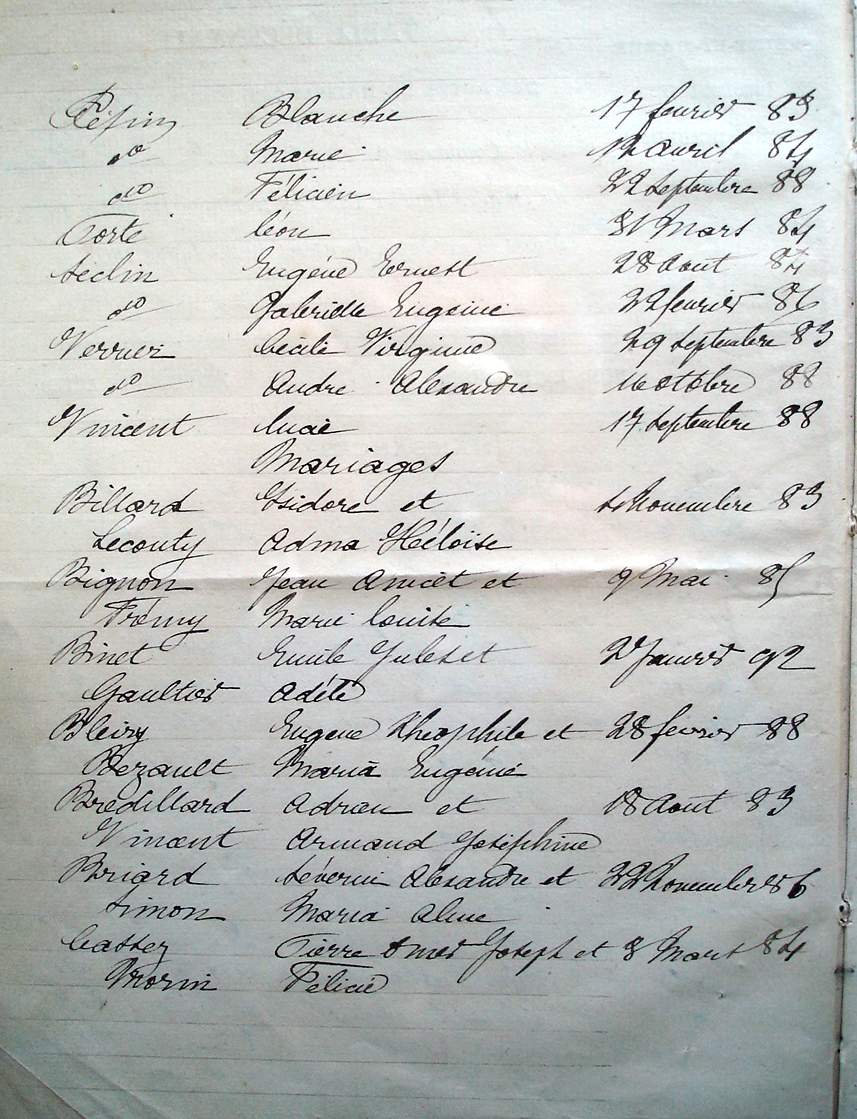 Pépin Blanche 17 fevrier 83
do Marie 12 avril 84
do Félicien 22 Septembre 88
Porte léon 31 Mars 84
Séclin Eugéne Ernest 28 Aout 84
do Gabrielle Eugénie 22 fevrier 86
Verrier Cécile Virginie 29 Septembre 83
do André Alexandre 16 octobre 88
Vincent lucie 17 Septembre 88
Mariages
Billard Isidore et 4 Novembre 83
Lecouty Adma Héloïse
Bignon Jean Anicet et 9 Mai 85
Frémy Marie louise
Binet Emile Jules et 2 Janvier 92
Gaultier Adéle
Bleiry Eugene Théophile et 28 fevrier 88
Bezault Maria Eugénie
Bredillard Adrien et 18 Aout 83
Vincent Armand Joséphine
Briard Séverin Alexandre et 22 Novembre 86
Simon Maria Aline
Pierre Omer Joseph et 8 Mars 84
Morin Félicie